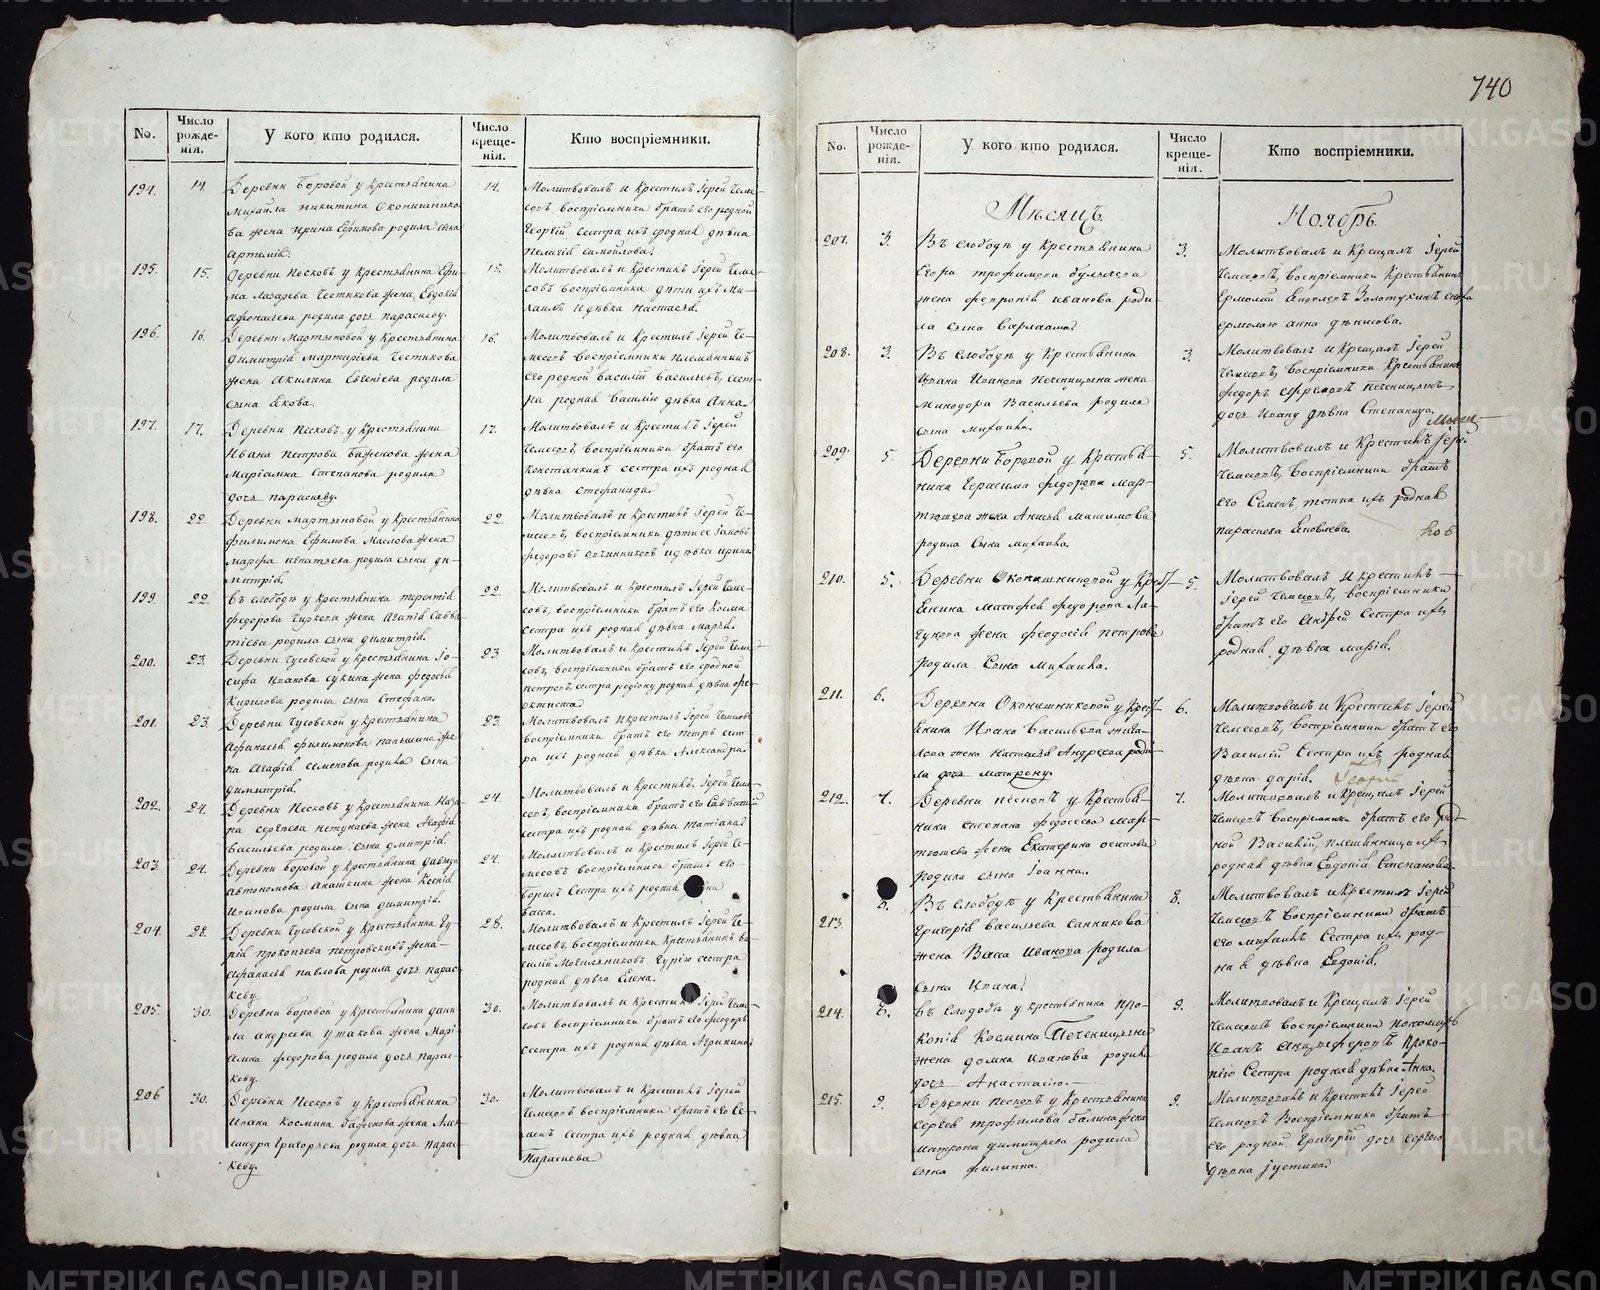 740
No.
Число рожде- нія.
У кого кто родился.
Число креще- нія.
Кто воспріемники.
194.
14.
Деревни Боровой у крестьянина
Михайла Никитина Оконишнико-
ва жена Ирина Ефимова родила сына
Артемія.
14.
Молитвовалъ и крестилъ Іерей Чеме-
совъ воспріемники братъ его родной
Георгій сестра ихъ родная дѣвка
195.
15.
Деревни Песковъ у крестьянина
Лазарева жена Евдокія
Афонасьева родила дочь Парасковью.
15.
Молитвовалъ и крестилъ Іерей Чеме-
совъ воспріемники дѣти ихъ Ми-
хаилъ и дѣвка Настасья.
196.
16.
Деревни Мартьяновой у крестьянина
Димитрія Мартиріева
жена Акилина Евгеніева родила
сына Якова.
16.
Молитвовалъ и крестилъ Іерей Че-
месовъ воспріемники племянникъ
его родной Василій Васильевъ, сест-
ра родная Василію дѣвка Анна.
197.
17.
Деревни Песковъ у крестьянина
Ивана Петрова Баженова жена
Маріамна Степанова родила
дочь Парасковью.
17.
Молитвовалъ и крестилъ Іерей
Чемесовъ воспріемники братъ его
Константинъ сестра ихъ родная
дѣвка Стефанида.
198.
22.
Деревни Мартьяновой у крестьянина
Филимона Ефимова Маслова жена
Марфа Игнатьева родила сына Ди-
митрія.
22.
Молитвовалъ и крестилъ Іерей Че-
месовъ, воспріемники
199.
22.
Въ слободѣ у крестьянина Терентія
Федорова жена Агапія Савва-
тіева родила сына Димитрія.
22.
Молитвовалъ и крестилъ Іерей Чеме-
совъ, воспріемники братъ его Косма
сестра ихъ родная дѣвка Марья.
200.
23.
Деревни Чусовской у крестьянина Іо-
сифа Иванова Сукина жена Федосья
Кирилова родила сына Стефана.
23.
Молитвовалъ и крестилъ Іерей Чеме-
совъ, воспріемники братъ его родной
Петръ, сестра родная дѣвка Фе-
октиста
201.
23.
Деревни Чусовской у крестьянина
Афанасья Филимонова Паньшина же-
на Агафія Семенова родила сына
Димитрія.
23.
Молитвовалъ и крестилъ Іерей Чемесовъ
воспріемники братъ его Петръ сест-
ра ихъ родная дѣвка Александра.
202.
24.
Деревни Песковъ у крестьянина Наза-
ра Сергѣева жена Агафія
Васильева родила сына Дмитрія.
24.
Молитвовалъ и крестилъ Іерей Чеме-
совъ, воспріемники братъ его
сестра ихъ родная дѣвка Татіана.
203.
24.
Деревни Боровой у крестьянина Давыда
Автономова Анашкина жена Ксенія
Иванова родила сына Димитрія.
24.
Молитвовалъ и крестилъ Іерей Че-
месовъ воспріемники братъ его
Борисъ сестра ихъ родная
Васса.
204.
28.
Деревни Чусовской у крестьянина Гу-
рія Прокопьева Петровскихъ жена
Афанасья Павлова родила дочь Парас-
кеву.
28.
Молитвовалъ и крестилъ Іерей Че-
месовъ, воспріемники крестьянинъ Ва-
силій Могильниковъ, Гурію сестра
родная дѣвка Елена.
205.
30.
Деревни Боровой у крестьянина Дани-
ла Андреева Ушакова жена Марі-
амна Федорова родила дочь Парас-
кеву.
30.
Молитвовалъ и крестилъ Іерей Чеме-
совъ воспріемники братъ его Федоръ
сестра ихъ родная дѣвка Агрипина.
206
30.
Деревни Песковъ у крестьянина
Ивана Космина Баженова жена Алек-
сандра Григорьева родила дочь Парас-
кеву.
30.
Молитвовалъ и крестилъ Іерей
Чемесовъ воспріемники братъ его Се-
менъ сестра ихъ родная дѣвка
Парасковья
No.
Число рожде- нія.
У кого кто родился.
Число креще- нія.
Кто воспріемники.
Мѣсяцъ
Ноябрь.
207.
3.
Въ слободѣ у крестьянина
Егора Трофимова
жена Февронія Иванова роди-
ла сына Варлаама.
3.
Молитвовалъ и крещалъ Іерей
Чемесовъ, воспріемники крестьянинъ
Ермолай Золотухинъ
Ермолаю Анна Денисова.
208.
3.
Въ слободѣ у крестьянина
Ивана Иванова Печеницына жена
Минодора Васильева родила
сына Михаила.
3
Молитвовалъ и крещалъ Іерей
Чемесовъ, воспріемники крестьянинъ
Федоръ Ефремовъ Печеницынъ,
дочь Ивану дѣвка Степанида.
209.
5.
Деревни Боровой у крестья-
нина Герасима Федорова Мар-
тюшева жена Анисья Максимова
родила сына Михаила.
5.
Молитвовалъ и крестилъ Іерей
Чемесовъ, воспріемники братъ
его Семенъ, тетка ихъ родная
Парасковья Яковлева.
210.
5.
Деревни Оконишниковой у крест-
янина Матфея Федорова Ла-
гунова жена Феодосія Петрова
родила сына Михаила.
5.
Молитвовалъ и крестилъ
Іерей Чемесовъ, воспріемники
братъ его Андрей сестра ихъ
родная дѣвка Марія.
211.
6.
Деревни Оконишниковой у крест-
янина Ивана Васильева
жена Настасья Андреева роди-
ла дочь Матрону.
6.
Молитвовалъ и крестилъ Іерей
Чемесовъ, воспріемники братъ его
Василій сестра ихъ родная
дѣвка Дарія.
212.
7.
Деревни Песковъ у крестья-
нина Степана Федосеева Мар-
тюшева жена Екатерина Осипова
родила сына Іоанна.
7.
Молитвовалъ и крещалъ Іерей
Чемесовъ воспріемники братъ его род-
ной Василій, племянница
родная дѣвка Евдокія Степанова.
213.
8.
Въ слободѣ у крестьянина
Григорія Васильева Санникова
жена Васса Иванова родила
сына Ивана.
8.
Молитвовалъ и крестилъ Іерей
Чемесовъ воспріемники братъ
его Михаилъ сестра ихъ род-
ная дѣвка Евдокія.
214.
8.
Въ слободѣ у крестьянина Про-
копія Космина Печеницына
жена Домна Иванова родила
дочь Анастасію.
9.
Молитвовалъ и крещалъ Іерей
Чемесовъ воспріемники
Иванъ Проко-
пію сестра родная дѣвка Анна.
215.
9.
Деревни Песковъ у крестьянина
Сергѣя Трофимова Галина жена
Матрона Димитрева родила
сына Филиппа.
9.
Молитвовалъ и крестилъ Іерей
Чемесовъ воспріемники братъ
его родной Григорій дочь Сергѣю
дѣвка Іустина.
METRIKI.GASO-URAL.RU